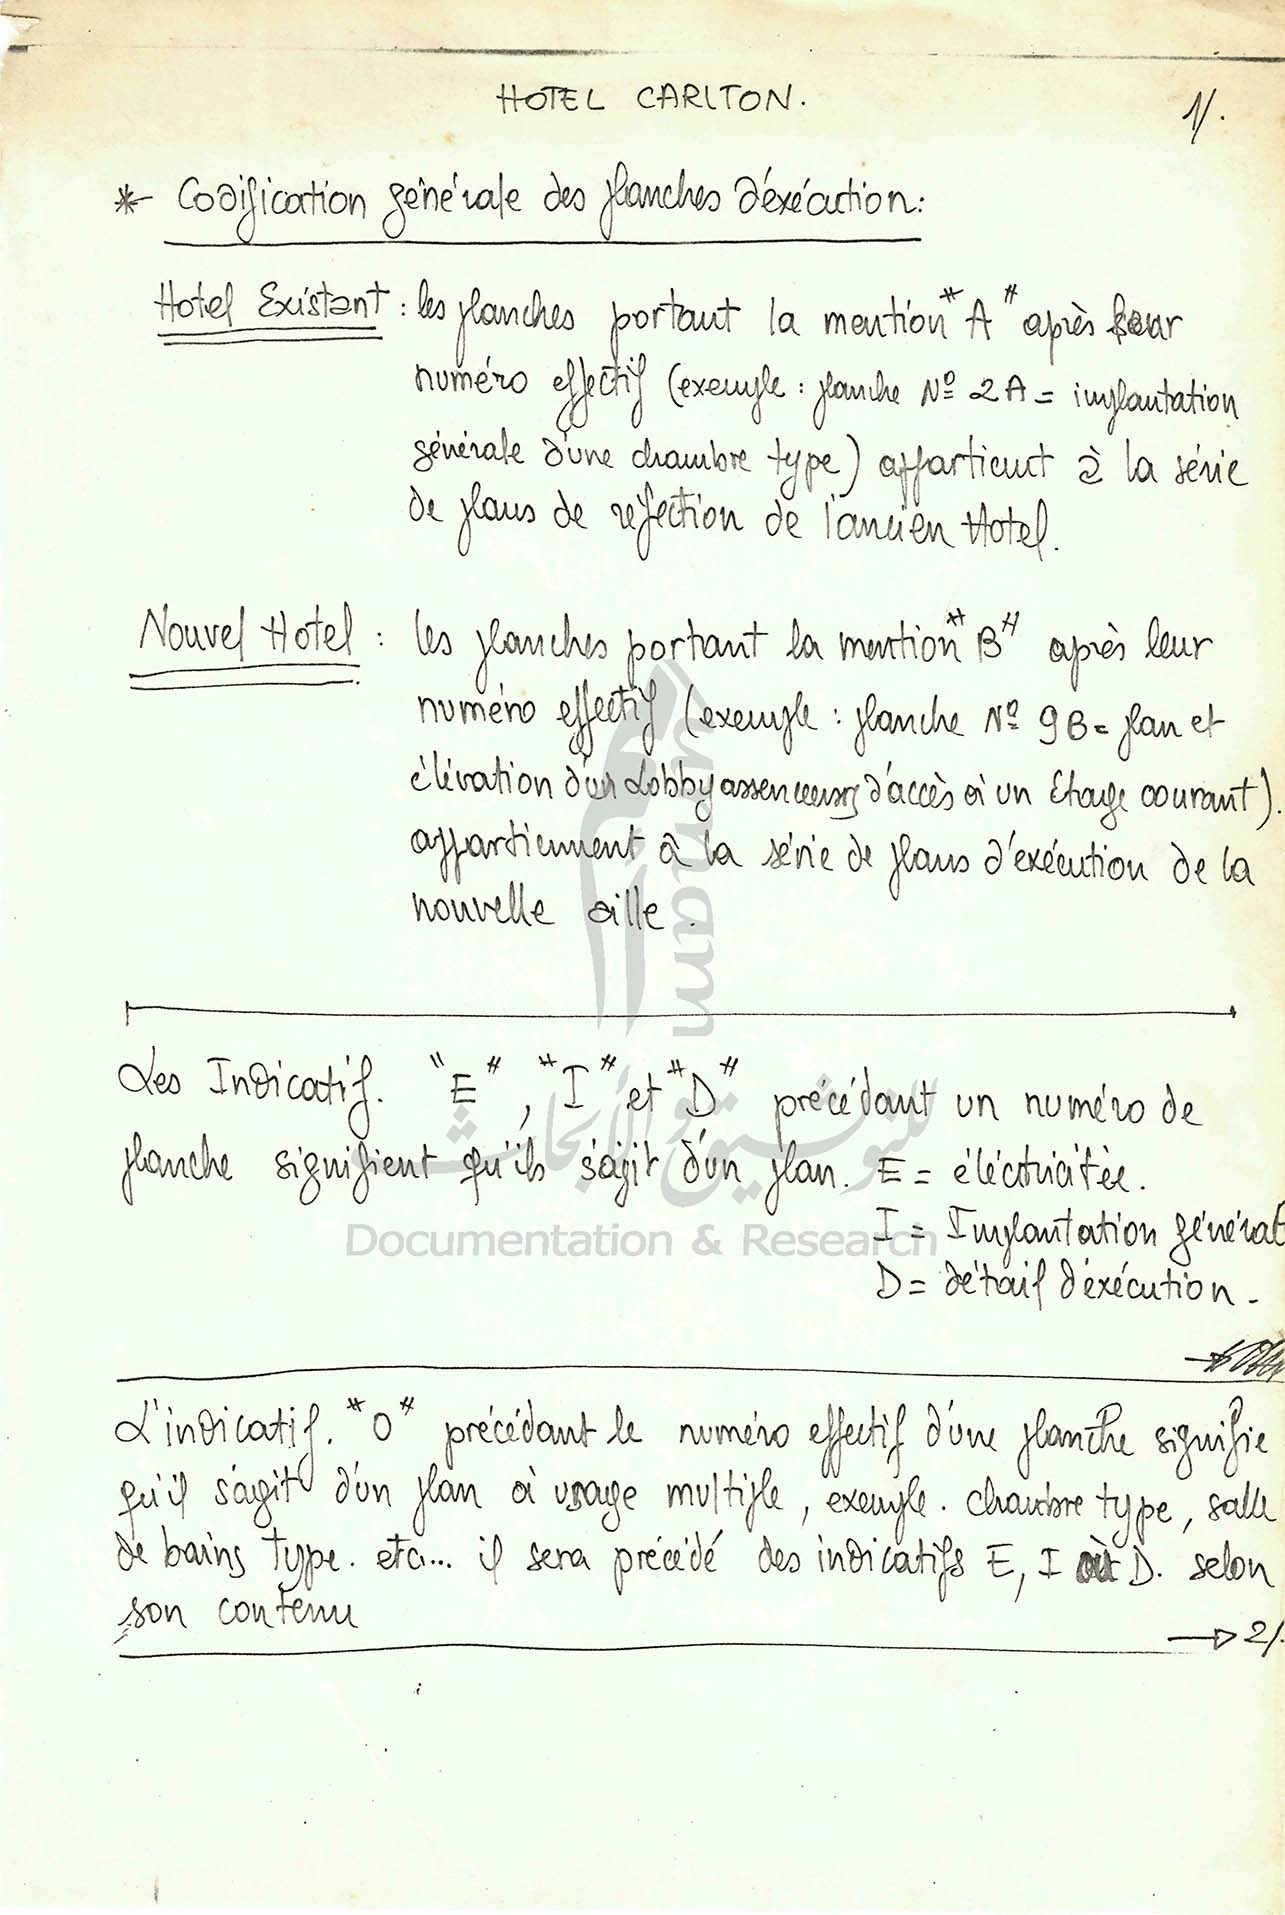 HOTEL CARLTON.
1/.
* Codification générale des planches d'éxécution:
Hotel Existant : les planches portant la mention "A" après leur
numéro effectif (exemple : planche Nº 2A = implantation
générale d'une chambre type) appartient à la série
de plans de réfection de l'ancien Hotel.
Nouvel Hotel : les planches portant la mention "B" après leur
numéro effectif (exemple : planche Nº 9B = plan et
élévation d'un Lobby ascenseurs d'accès à un Etage courant).
appartiennent à la série de plans d'exécution de la
nouvelle aille.
Les Indicatif. "E", "I" et "D" précédant un numéro de
planche signifient qu'ils s'agit d'un plan. E = éléctricitée.
I = Implantation général
D = détail d'éxécution -
L'indicatif. "O" précédant le numéro effectif d'une planche signifie
qu'il s'agit d'un plan à usage multiple, exemple. chambre type, salle
de bains type. etc... il sera précédé des indicatifs E, I où D. selon
son contenu
→ 2/.
umam
للتوثيق و الأبحاث
Documentation & Research